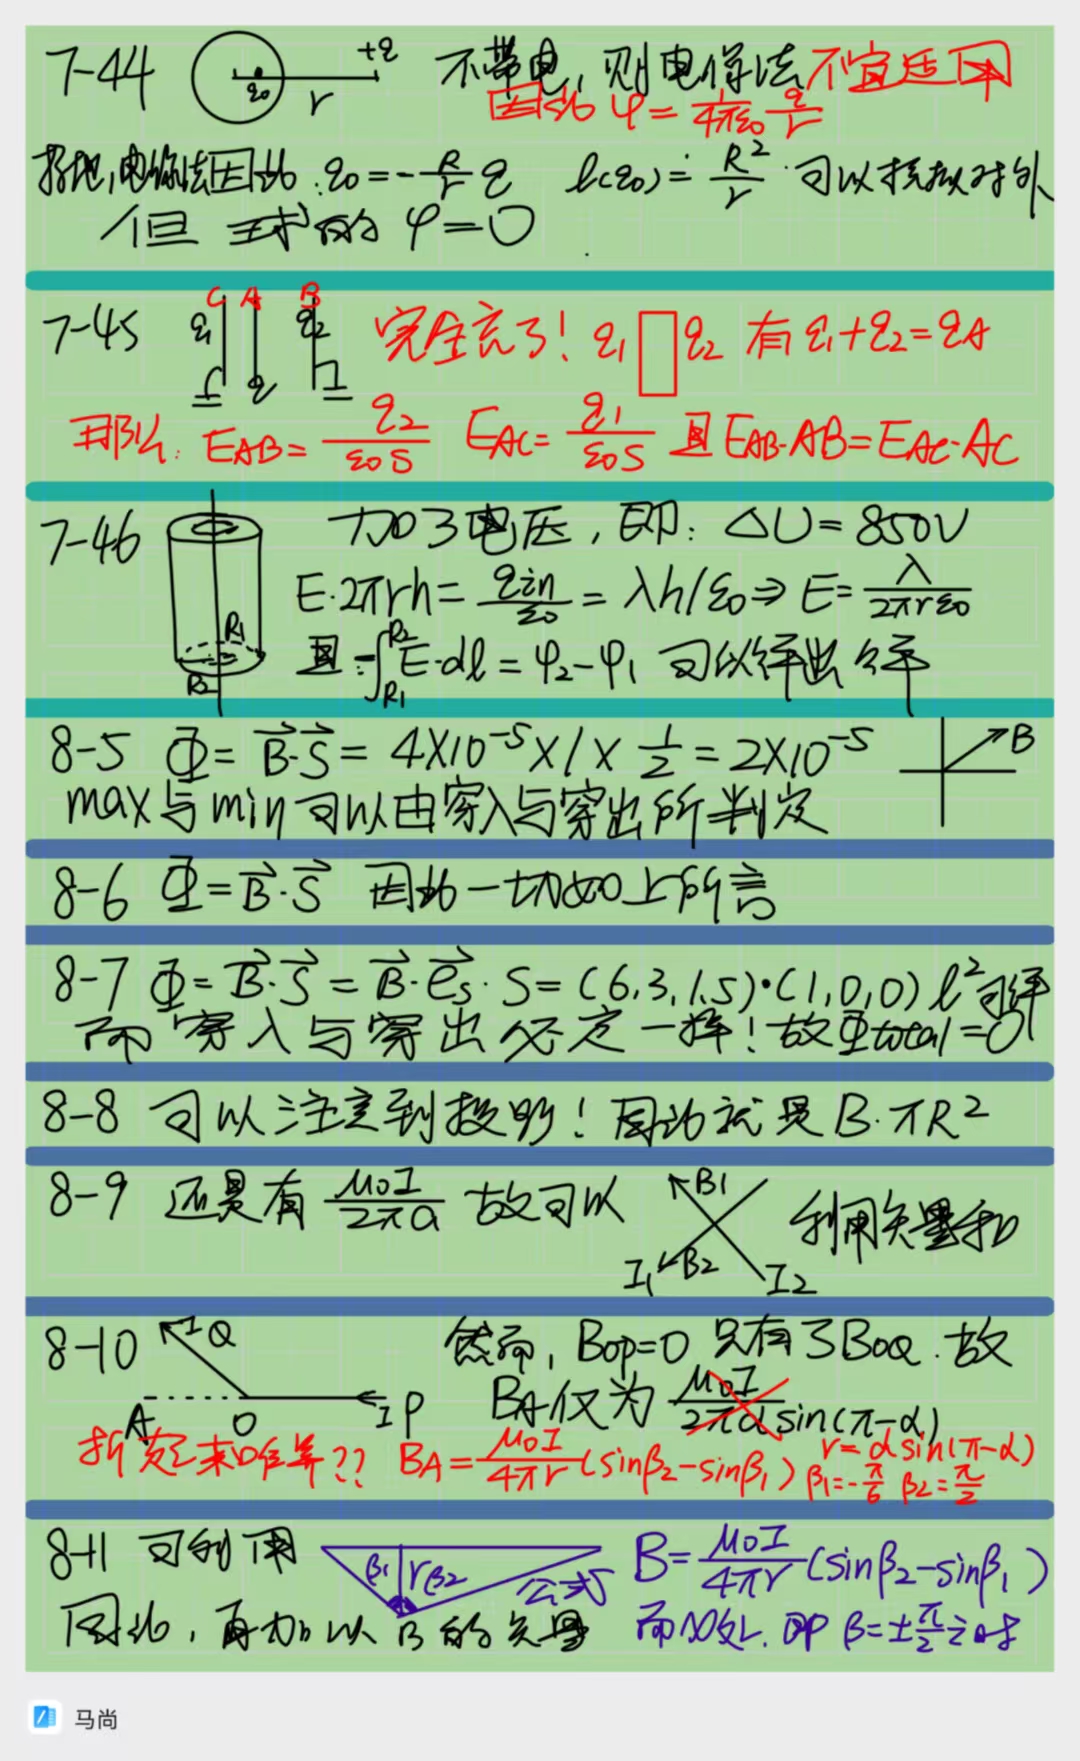 7-44 q0 r +q 不带电，则电像法不宜适用
因此 φ=1/4πε0 q/r
接地，电像法因此：q0=-R/r q l(q0)=R²/r 可以模拟对外
但 球的 φ=0
7-45 C A B q1 q q2 完全充了！ q1 q2 有 q1+q2=qA
那么：EAB=q2/ε0S EAC=q1/ε0S 且 EAB·AB=EAC·AC
7-46 加了电压，即：ΔU=850V
E·2πrh=qin/ε0=λh/ε0⇒E=λ/2πrε0
R1 R2 且：-∫R1R2 E·dl=φ2-φ1 可以得出
8-5 Φ=B·S=4×10⁻⁵×1×1/2=2×10⁻⁵ B
max与min可以由穿入与穿出所判定
8-6 Φ=B·S 因此一切如上所言
8-7 Φ=B·S=B·es·S=(6,3,1.5)·(1,0,0)l²可得
而穿入与穿出必定一样！故Φtotal=0
8-8 可以注意到投影！因此就是B·πR²
8-9 还是有 μ0I/2πa 故可以 B1 B2 I1 I2 利用矢量和
8-10 I Q A O I P 然而，BOP=0 只有了BOQ.故
BA仅为 μ0I/2πd sin(π-α)
折起来咋算?? BA=μ0I/4πr(sinβ2-sinβ1) r=d sin(π-α) β1=-π/6 β2=π/2
8-11 可利用 β1 r β2 公式 B=μ0I/4πr(sinβ2-sinβ1)
因此，再加以B的矢量 而∞处，即β=±π/2之时
马尚